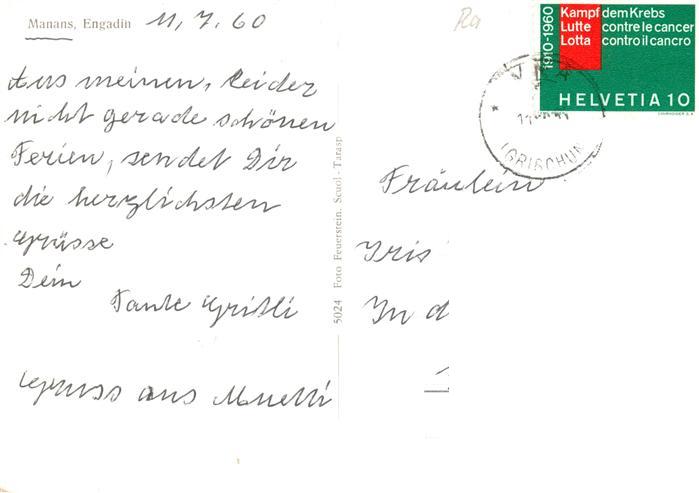 Manans, Engadin
11. 7. 60
Aus meinen, leider
nicht gerade schönen
Ferien, sendet Dir
die herzlichsten
Grüsse
Dein
Tante Gritli
Gruss aus Muetti
5024 Foto Feuerstein, Scuol-Tarasp
Ra
1910-1960
Kampf dem Krebs
Lutte contre le cancer
Lotta contro il cancro
HELVETIA 10
(GRISCHUN
Fräulein
Iris
In d